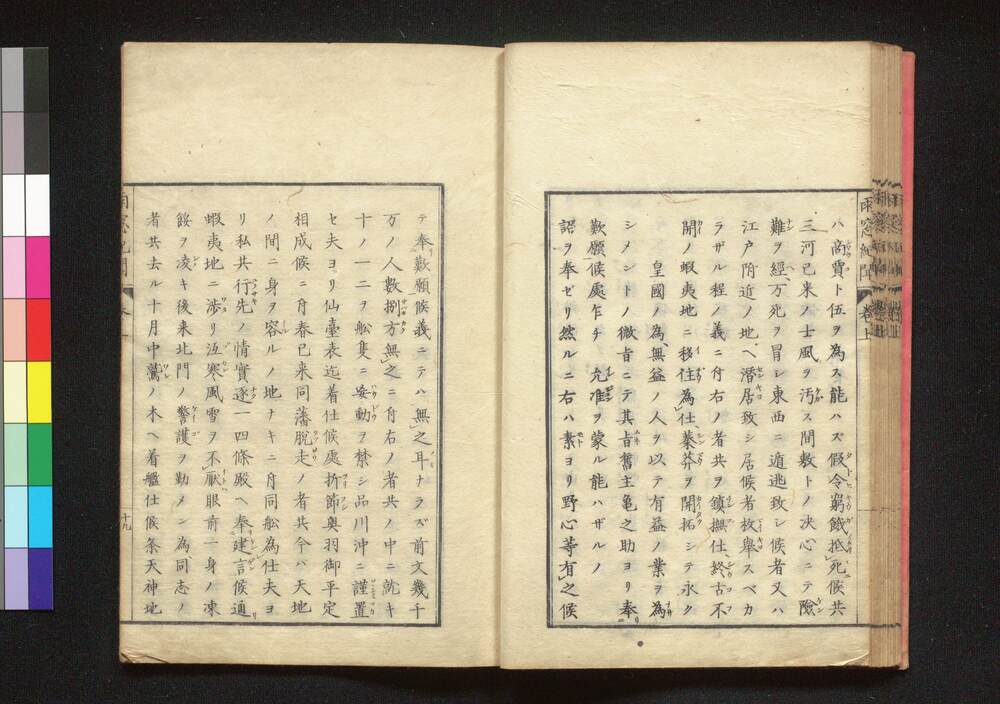 雨窓紀聞 巻上
ハ商賈ト伍ヲ為ス能ハズ假令窮餓抵死候共
三河已来ノ士風ヲ汚ス間敷トノ決心ニテ險
難ヲ經、万死ヲ冒シ東西ニ遁逃致シ候者又ハ
江戸附近ノ地ヘ潜居致シ居候者枚舉スベカ
ラザル程ノ義ニ付右ノ者共ヲ鎮撫仕終古不
開ノ蝦夷地ニ移住為仕蓁莽ヲ開拓シテ永ク
皇國ノ為、無益ノ人ヲ以テ有益ノ業ヲ為
シメントノ微旨ニテ其旨舊主亀之助ヨリ奉
歎願候處乍チ 允准ヲ蒙ル能ハザルノ
詔ヲ奉ゼリ然ルニ右ハ素ヨリ野心等有之候
テ奉歎願候義ニテハ無之耳ナラズ前文幾千
万ノ人數捌方無之ニ付右ノ者共ノ中ニ就キ
十ノ一二ヲ舩隻ニ妄動ヲ禁シ品川沖ニ謹置
セ夫ヨリ仙臺表迄着仕候處折節奥羽御平定
相成候ニ付春已来同藩脱走ノ者共今ハ天地
ノ間ニ身ヲ容ルノ地ナキニ付同舩為仕夫ヨ
リ私共行先ノ情實逐一四條殿ヘ奉建言候通
蝦夷地ニ渉リ沍寒風雪ヲ不厭眼前一身ノ凍
餒ヲ凌キ後来北門ノ警護ヲ勤メン為、同志ノ
者共去ル十月中鷲ノ木ヘ着艦仕候条天神地
十九